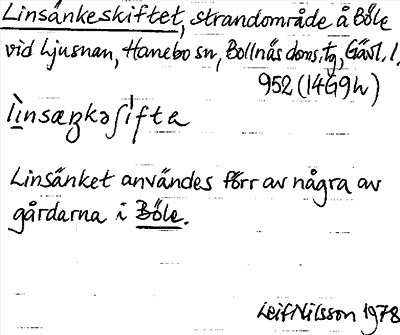 Linsänkeskiftet, strandområde å Böle
vid Ljusnan, Hanebo sn, Bollnäs doms. tg, Gävl. l.
952 (14G9h)
lìnsæŋkəʃifta
Linsänket användes förr av några av
gårdarna i Böle.
Leif Nilsson 1978